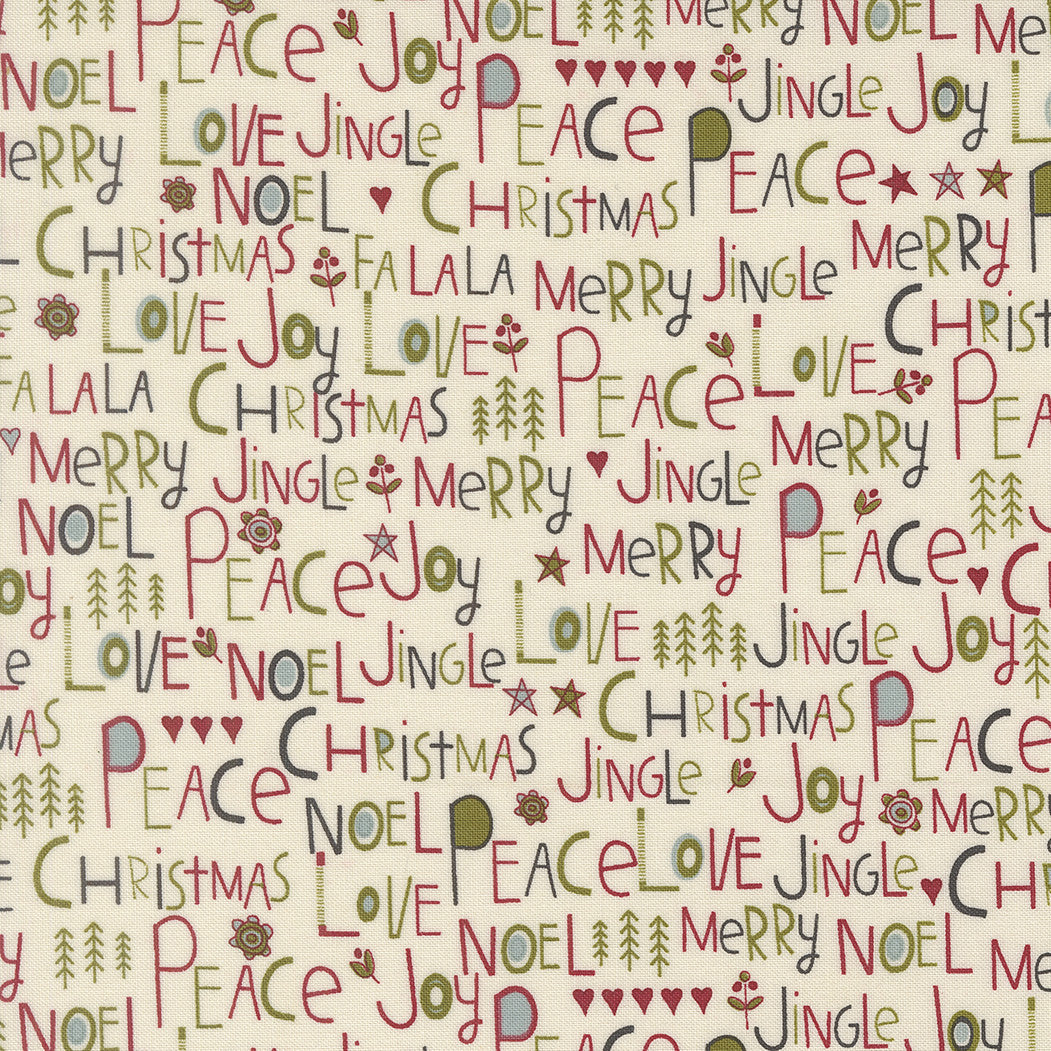 PEACE JOY NOEL MeRRY NOEL Me
NOEL LOVE JiNGLe PEACE JiNGLe JOY L
MeRRY NOEL CHRiStMAS PEACe
CHRiStMAS FALALA MeRRY JiNGLe MeRRY P
e LOVE JOY LOVE PEACe LOVE CHRiSt
FALALA CHRiStMAS MeRRY PEA
MeRRY JiNGLe MeRRY JiNGLe
NOEL PEACe JOY MeRRY PEACe C
OY LOVE NOEL JiNGLe LOVE JiNGLe JOY
Le CHRiStMAS PEACe
MAS PEACe CHRiStMAS JiNGLe JOY MeRRY
CHRiStMAS NOEL PEACE LOVE JiNGLe CHR
Y LOVE NOEL MeRRY NOEL Me
NOEL PEACe JOY PEACE JiNGLe JOY L